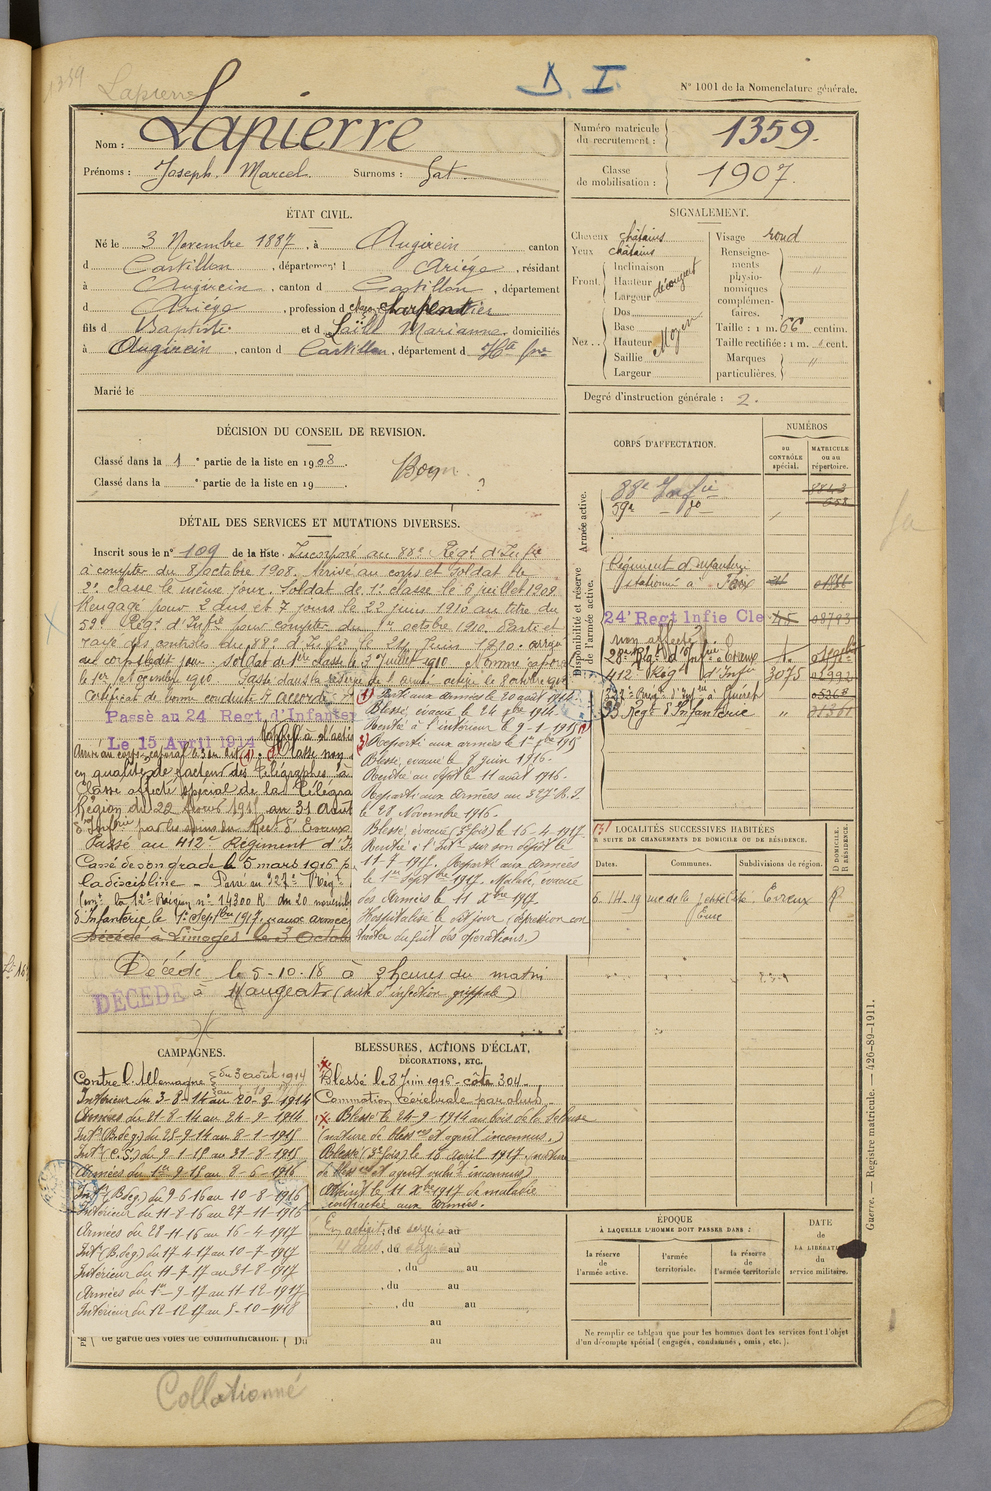 1339
Lapierre
D. I.
N° 1001 de la Nomenclature générale.
Nom : Lapierre
Prénoms : Joseph Marcel Surnoms : Gat.
Numéro matricule du recrutement : 1359.
Classe de mobilisation : 1907.
ÉTAT CIVIL.
Né le 3 Novembre 1887, à Augirein canton
d Castillon, département d Ariége, résidant
à Augirein, canton d Castillon, département
d Ariége, profession d charpentier
fils d Baptiste et d Marianne, domiciliés
à Augirein, canton d Castillon, département d Hte Gne
Marié le
SIGNALEMENT.
Cheveux châtains
Yeux châtains
Front. Inclinaison
Hauteur découvert
Largeur
Nez. Dos
Base
Hauteur Moyen
Saillie
Largeur
Visage rond
Renseignements physionomiques complémentaires. "
Taille : 1 m. 66 centim.
Taille rectifiée : 1 m. " cent.
Marques particulières. "
Degré d'instruction générale : 2.
DÉCISION DU CONSEIL DE REVISION.
Classé dans la 1 e partie de la liste en 1908.
Classé dans la e partie de la liste en 19
Bon
?
CORPS D'AFFECTATION.
NUMÉROS
au CONTRÔLE spécial.
MATRICULE ou au répertoire.
Armée active.
88e Infie
59e - do
Disponibilité et réserve de l'armée active.
Régiment d'Infanterie
stationné à Foix
24e Regt Infie Cle
non affecté
28e Régt d'Infie à Evreux
412e Régt d'Infie 3075
Régt d'Infanterie "
DÉTAIL DES SERVICES ET MUTATIONS DIVERSES.
Inscrit sous le n° 109 de la liste. Incorporé au 88e Régt d'Infie
à compter du 8 octobre 1908. Arrivé au corps et soldat de
2e classe le même jour. Soldat de 1e classe le 6 juillet 1909.
Rengagé pour 2 ans et 7 jours le 22 juin 1910 au titre du
59e Régt d'Infie pour compter du 1er octobre 1910. Parti et
rayé des contrôles du 88e d'Infie le 24 Juin 1910. arrivé
au corps ledit jour. Soldat de 1er classe le 3 juillet 1910 Nommé caporal
le 1er Novembre 1910. Passé dans la réserve de l'armée active le 8 octobre 1910
Certificat de bonne conduite accordé
Passé au 24 Regt d'Infanterie
Le 15 Avril 1914
Rappelé à l'activité
en qualité de facteur des Télégraphes à
Classe affecté spécial de la Télégra
Région du 22 1915 au 31 Aout
Passé au 412e Régiment d'I
Cassé de son grade le 5 mars 1916 p
la discipline - Passé au 327e Régt
d'Infanterie le 1er Septbre 1917. aux armées
Décédé à Limoges le 3 Octob
(1) Parti aux armées le 20 août 1914.
Blessé, évacué le 24 7bre 1914.
Rentré à l'intérieur le 9-1-1915
(3) Reparti aux armées le 1er 7bre 1915
Blessé, évacué le 8 juin 1916.
Rentré au dépôt le 11 août 1916.
Reparti aux Armées au 327e R.I.
le 28 Novembre 1916.
Blessé, évacué (3e fois) le 16-4-1917.
Rentré à l'Intr sur son dépôt le
11-7-1917. Reparti aux armées
le 1er Septbre 1917. Malade, évacué
des Armées le 11 Xbre 1917.
Hospitalisé le dit jour (dépression con
tractée du fait des opérations.)
Décédé le 5-10-18 à 2 heures du matin
à Naugeat (suite d'infection grippale)
DÉCÉDÉ
LOCALITÉS SUCCESSIVES HABITÉES
PAR SUITE DE CHANGEMENTS DE DOMICILE OU DE RÉSIDENCE.
Dates. Communes. Subdivisions de région.
D DOMICILE.
R RÉSIDENCE.
6. 14. 19 rue de la petite Cité. Evreux R
Eure
CAMPAGNES.
Contre l'Allemagne du 3 août 1914
Intérieur du 3-8-14 au 20-8-1914
Armées du 21-8-14 au 24-9-1914
Intr (B. de g.) du 25-9-14 au 8-1-1915
Intr (C.S.) du 9-1-15 au 31-8-1915
Armées du 1er-9-15 au 8-6-1916
Intr (B. de g.) du 9-6-16 au 10-8-1916
Intérieur du 11-8-16 au 27-11-1916
Armées du 28-11-16 au 16-4-1917
Intr (B. de g.) du 17-4-17 au 10-7-1917
Intérieur du 11-7-17 au 31-8-1917
Armées du 1er-9-17 au 11-12-1917
Intérieur du 12-12-17 au 5-10-1918
de garde des voies de communication. Du
BLESSURES, ACTIONS D'ÉCLAT,
DÉCORATIONS, ETC.
Blessé le 8 Juin 1916 - côte 304.
Commotion cérébrale par obus
Blessé le 24-9-1914 au bois de la
(nature de blessres et agent inconnus.)
Blessé (3e fois) le 16 April 1917 (nature
de blessres et agent vulnt inconnus)
Atteint le 11 Xbre 1917 de maladie
contractée aux armées.
En activité, du service au
, du au
, du au
, du au
au
au
ÉPOQUE
À LAQUELLE L'HOMME DOIT PASSER DANS :
la réserve de l'armée active.
l'armée territoriale.
la réserve de l'armée territoriale
DATE de LA LIBÉRATION du service militaire.
Ne remplir ce tableau que pour les hommes dont les services font l'objet
d'un décompte spécial (engagés, condamnés, omis, etc.).
Guerre. — Registre matricule. — 426-89-1911.
Collationné